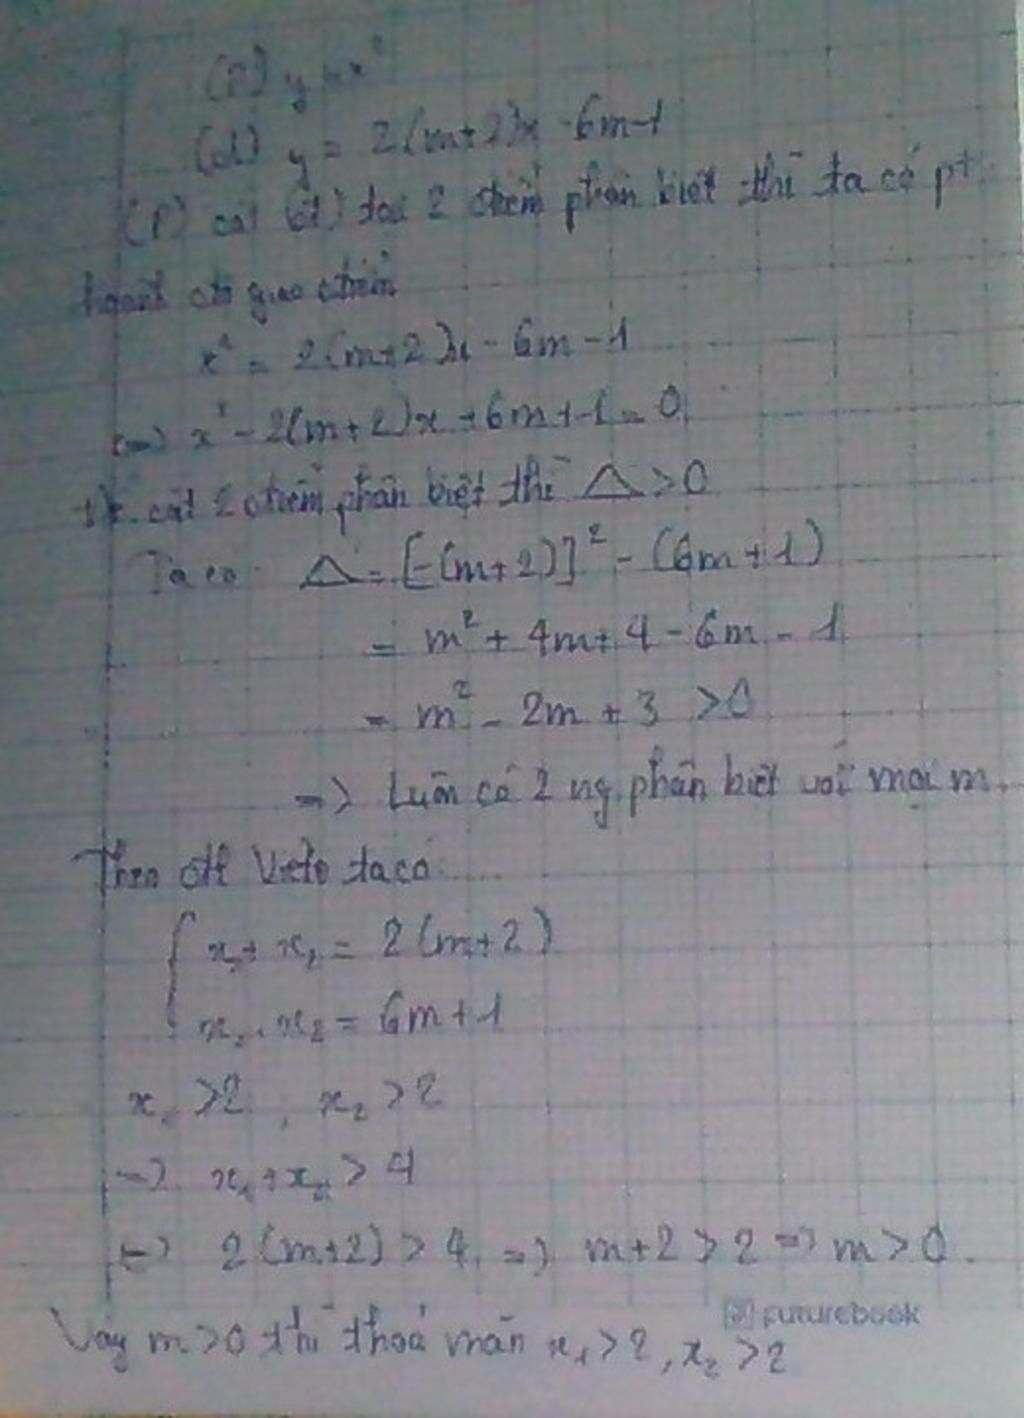 (P) y = x²
(d) y = 2(m+2)x - 6m-1
(P) cắt (d) tại 2 điểm phân biệt thì ta có pt
hoành độ giao điểm
x² = 2(m+2)x - 6m - 1
<=> x² - 2(m+2)x + 6m + 1 = 0
cắt 2 điểm phân biệt thì Δ > 0
Ta có: Δ = [-(m+2)]² - (6m+1)
= m² + 4m + 4 - 6m - 1
= m² - 2m + 3 > 0
=> Luôn có 2 ng phân biệt với mọi m.
Theo đl Viète ta có:
x₁ + x₂ = 2(m+2)
x₁ . x₂ = 6m+1
x₁ > 2, x₂ > 2
=> x₁ + x₂ > 4
<=> 2(m+2) > 4 => m+2 > 2 => m > 0.
futurebook
Vậy m > 0 thì thoả mãn x₁ > 2, x₂ > 2